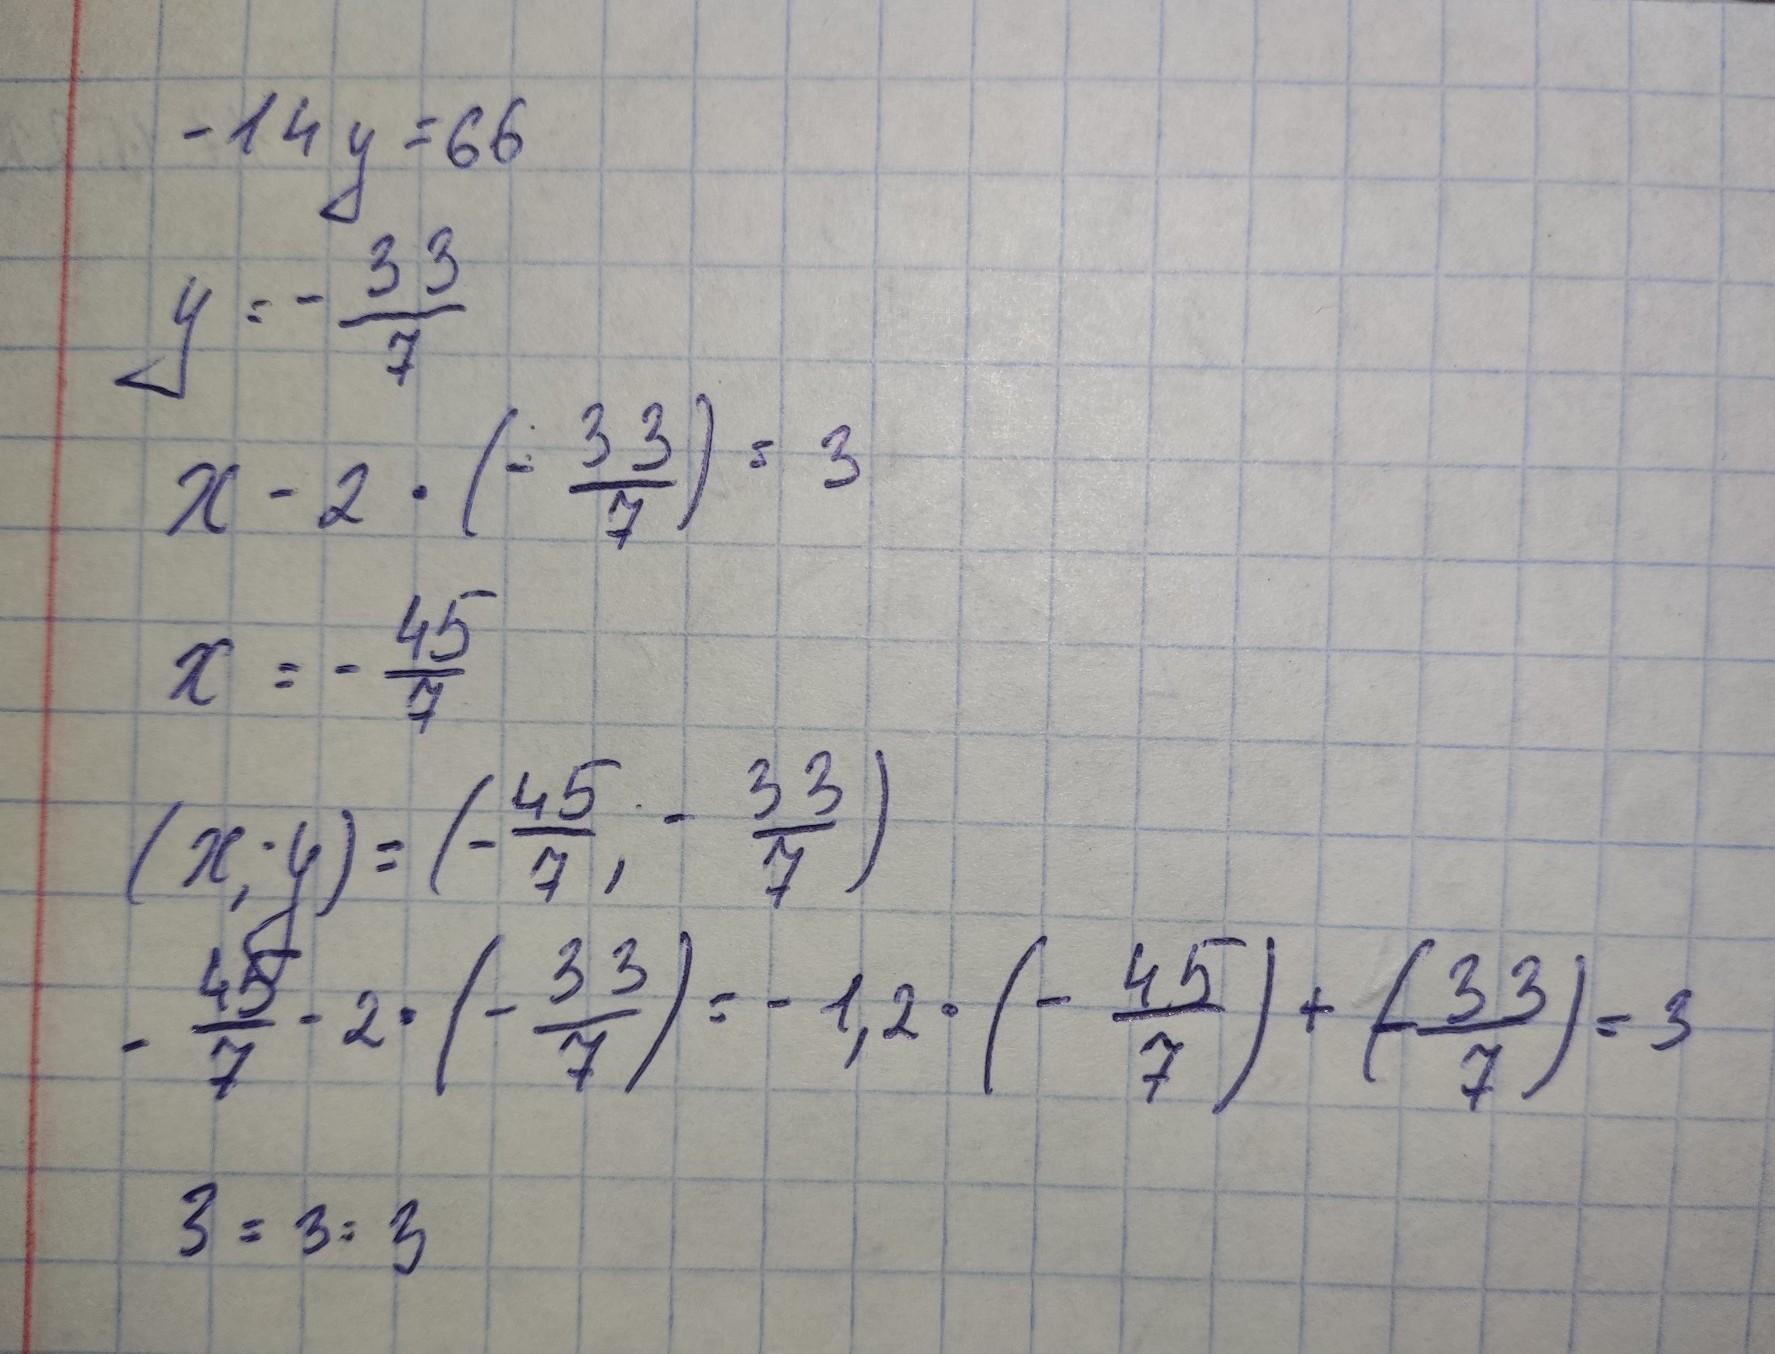 -14y=66
y=-33/7
x-2·(-33/7)=3
x=-45/7
(x,y)=(-45/7,-33/7)
-45/7-2·(-33/7)=-1,2·(-45/7)+(-33/7)=3
3=3=3